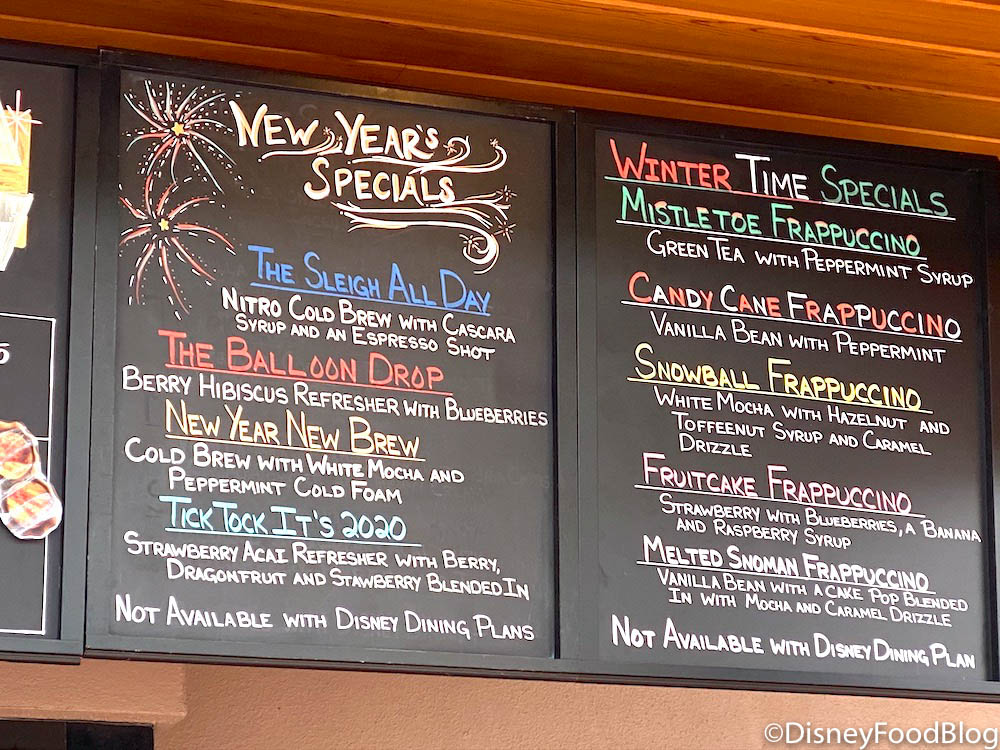 New Year's
Specials
The Sleigh All Day
Nitro Cold Brew with Cascara
Syrup and an Espresso Shot
The Balloon Drop
Berry Hibiscus Refresher with Blueberries
New Year New Brew
Cold Brew with White Mocha and
Peppermint Cold Foam
Tick Tock It's 2020
Strawberry Acai Refresher with Berry,
Dragonfruit and Stawberry Blended In
Not Available with Disney Dining Plans
Winter Time Specials
Mistletoe Frappuccino
Green Tea with Peppermint Syrup
Candy Cane Frappuccino
Vanilla Bean with Peppermint
Snowball Frappuccino
White Mocha with Hazelnut and
Toffeenut Syrup and Caramel
Drizzle
Fruitcake Frappuccino
Strawberry with Blueberries, a Banana
and Raspberry Syrup
Melted Snoman Frappuccino
Vanilla Bean with a Cake Pop Blended
In with Mocha and Caramel Drizzle
Not Available with Disney Dining Plan
©DisneyFoodBlog